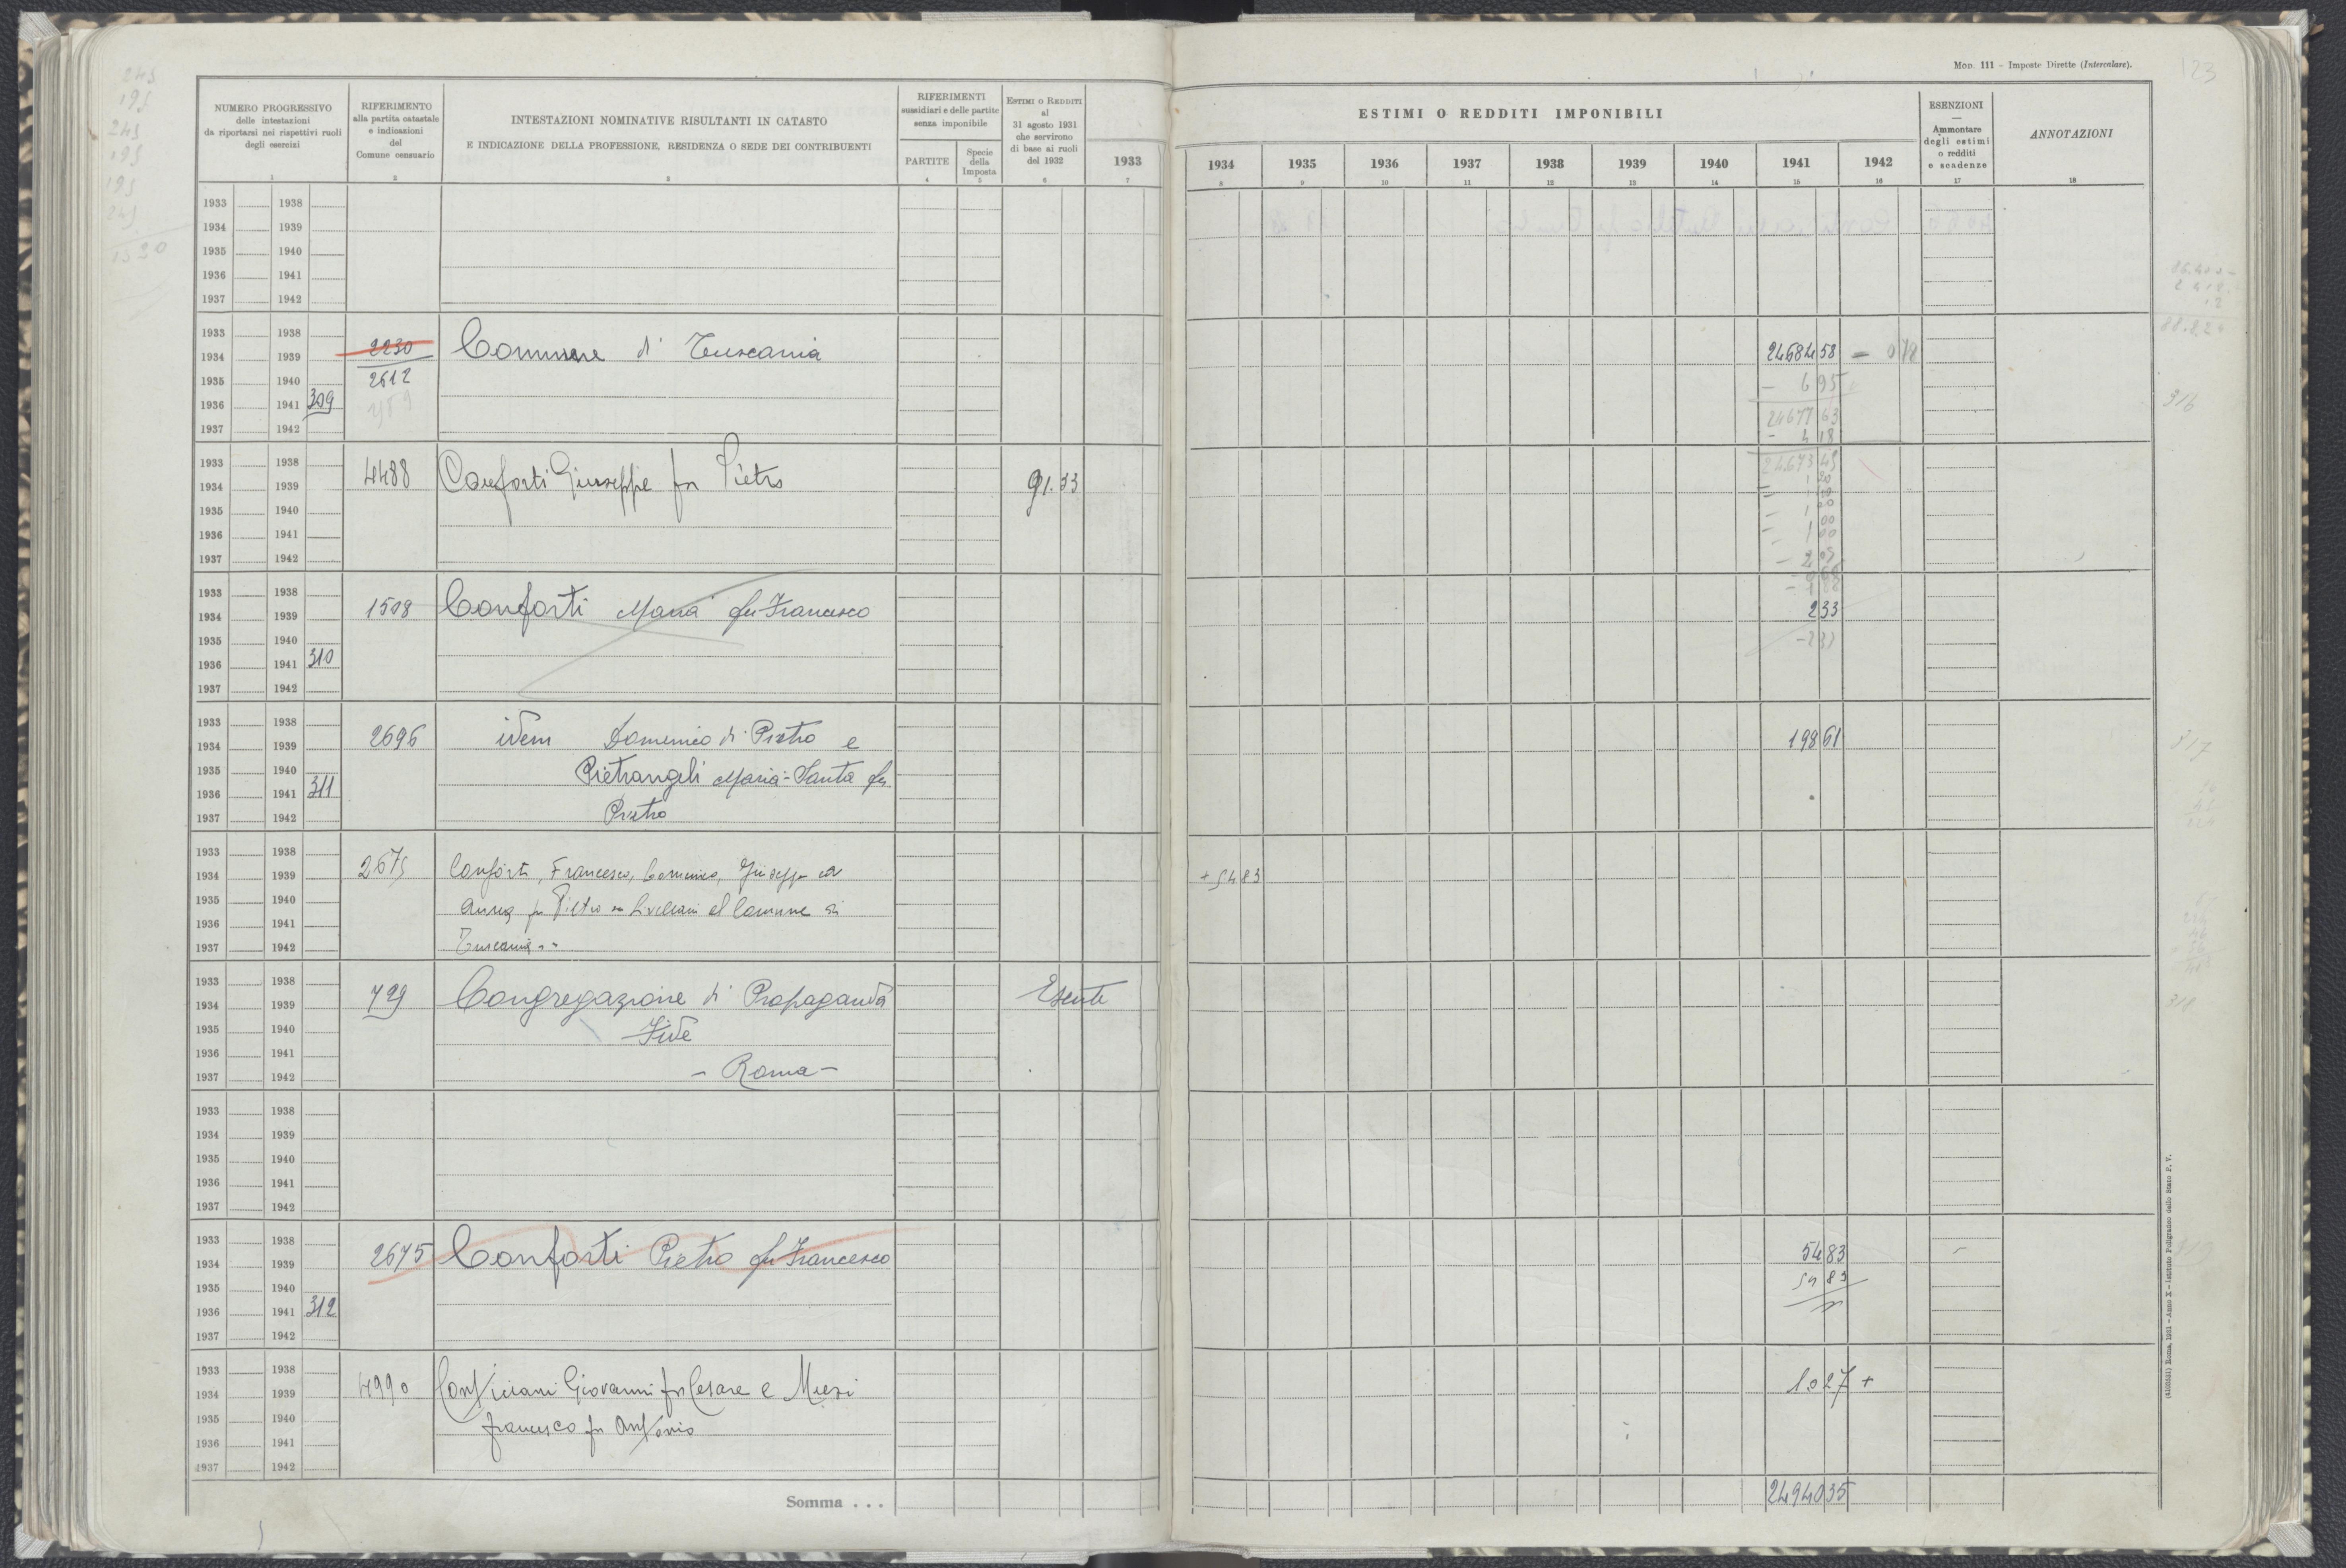 Mod. 111 – Imposte Dirette (Intercalare).
123
NUMERO PROGRESSIVO
delle intestazioni
da riportarsi nei rispettivi ruoli
degli esercizi
1
RIFERIMENTO
alla partita catastale
e indicazioni
del
Comune censuario
2
INTESTAZIONI NOMINATIVE RISULTANTI IN CATASTO
E INDICAZIONE DELLA PROFESSIONE, RESIDENZA O SEDE DEI CONTRIBUENTI
3
RIFERIMENTI
sussidiari e delle partite
senza imponibile
PARTITE
4
Specie
della
Imposta
5
ESTIMI O REDDITI
al
31 agosto 1931
che servirono
di base ai ruoli
del 1932
6
1933
7
ESTIMI O REDDITI IMPONIBILI
1934 1935 1936 1937 1938 1939 1940 1941 1942
8 9 10 11 12 13 14 15 16
ESENZIONI
—
Ammontare
degli estimi
o redditi
e scadenze
17
ANNOTAZIONI
18
245
195
245
195
195
245
1320
1933 1938
1934 1939
1935 1940
1936 1941
1937 1942
1933 1938
1934 1939 2230 Comune di Tuscania 24684 58 – 0 78
1935 1940 2612 – 6 95
1936 1941 309 24677 63
1937 1942 – 4 18
316
1933 1938 24673 45
1934 1939 4488 Conforti Giuseppe fu Pietro 91.33
1935 1940
1936 1941
1937 1942
1933 1938
1934 1939 1508 Conforti Maria fu Francesco 2 33
1935 1940 – 2 33
1936 1941 310
1937 1942
1933 1938
1934 1939 2696 idem Domenico di Pietro e 198 61
1935 1940 Pietrangeli Maria-Santa fu
1936 1941 311
1937 1942 Pietro
317
1933 1938
1934 1939 2675 Conforti, Francesco, Domenico, Giuseppe ed + 54 83
1935 1940 Anna fu Pietro Livellari al Comune di
1936 1941
1937 1942 Tuscania
1933 1938
1934 1939 729 Congregazione di Propaganda Esente
1935 1940 Fide
1936 1941
1937 1942 – Roma –
318
1933 1938
1934 1939
1935 1940
1936 1941
1937 1942
1933 1938
1934 1939 2675 Conforti Pietro fu Francesco 54 83
1935 1940 54 83
1936 1941 312
1937 1942
319
1933 1938
1934 1939 4990 Conticiani Giovanni fu Cesare e 1.027 +
1935 1940 Francesco fu Antonio
1936 1941
1937 1942
Somma . . . 24940 35
(4105031) Roma, 1931 – Anno X – Istituto Poligrafico dello Stato P. V.